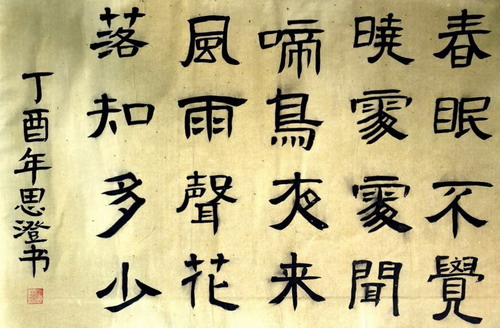 春眠不覺
曉處處聞
啼鳥夜来
風雨聲花
落知多少
丁酉年思澄书